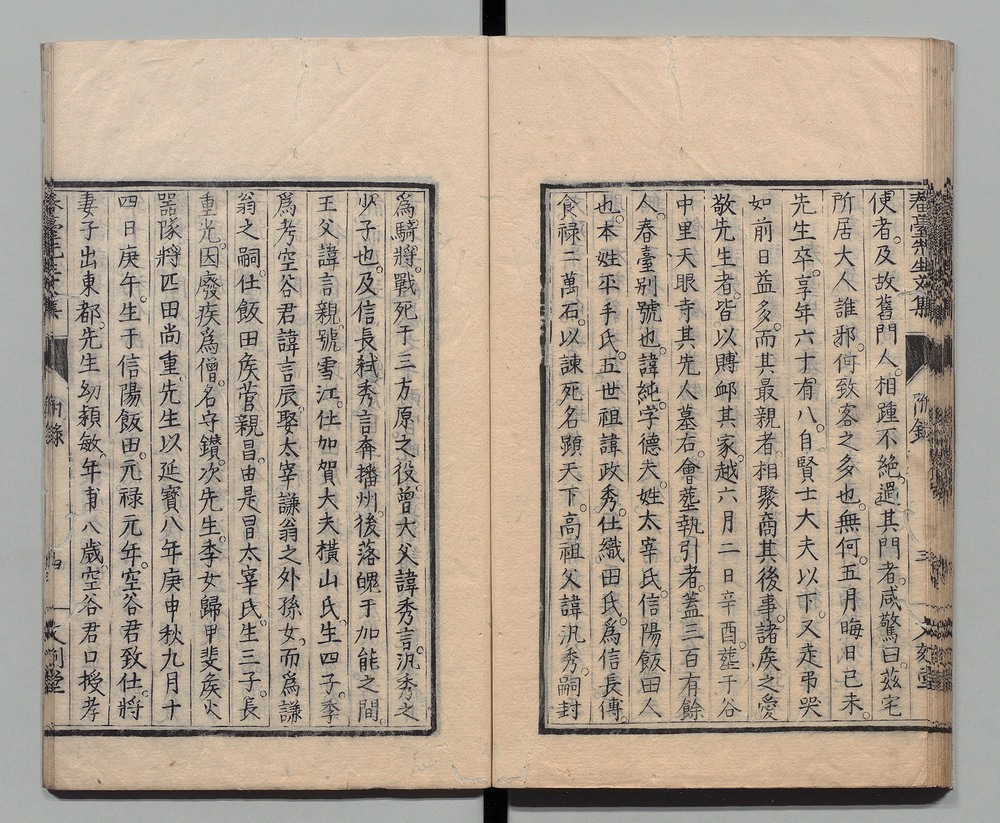 使者及故舊門人相踵不絶過其門者咸驚曰茲宅
所居大人誰邪何致客之多也無何五月晦日己未
先生卒享年六十有八自賢士大夫以下又走弔哭
如前日益多而其最親者相聚商其後事諸矦之愛
敬先生者皆以賻卹其家越六月二日辛酉塟于谷
中里天眼寺其先人墓右會塟執引者蓋三百有餘
人春臺别號也諱純字德夫姓太宰氏信陽飯田人
也本姓平手氏五世祖諱政秀仕織田氏爲信長傅
食祿二萬石以諫死名顕天下高祖父諱汎秀嗣封
爲騎將戰死于三方原之役曽大父諱秀言汎秀之
少子也及信長弑秀言奔播州後落魄于加能之間
王父諱言親號雪江仕加賀大夫横山氏生四子季
爲考空谷君諱言辰娶太宰謙翁之外孫女而爲謙
翁之嗣仕飯田矦菅親昌由是冒太宰氏生三子長
重光因廢疾爲僧名守鑚次先生季女歸甲斐矦火
器隊將匹田尚重先生以延寳八年庚申秋九月十
四日庚午生于信陽飯田元祿元年空谷君致仕將
妻子出東都先生幼穎敏年甫八歲空谷君口授孝
附錄